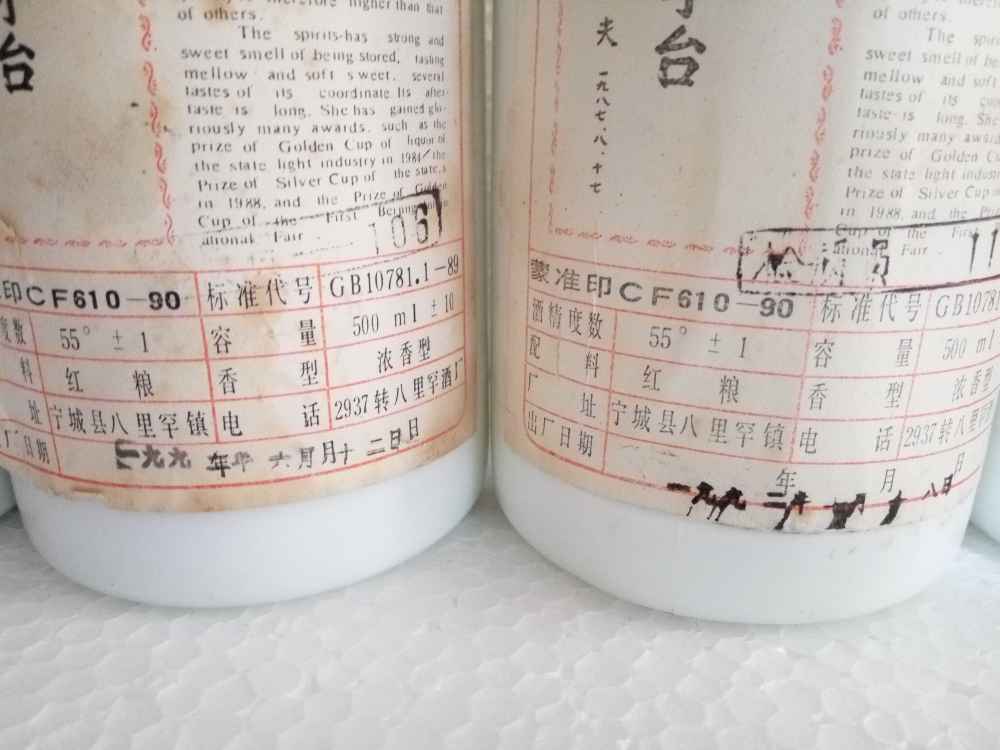 台
of others.
The spirits-has strong and
sweet smell of being stored, tasting
mellow and soft sweet. several
tastes of its coordinate Its after
taste is long. She has gained glo-
riously many awards. such as the
prize of Golden Cup of liquor of
the state light industry in 1984/the
Prize of Silver Cup of the state,s
in 1988, and the Prize of Golden
Cup of the First
ational Fair
106
印CF610-90 标准代号 GB10781.1-89
度数 55°±1 容量 500ml±10
料 红粮 香型 浓香型
址 宁城县八里罕镇 电话 2937转八里罕酒厂
厂日期 一九九 年 六月十二日
台
夫 一九八七.八.十七
of others.
The spirits
sweet smell of
mellow and soft
tastes of its
taste is long. She
riously many
prize of Golden
the state light
Prize of Silver Cup
in 1988, and the
Cup of the First
ational Fair
11
蒙准印CF610-90 标准代号 GB1078
酒精度数 55°±1 容量 500ml
配料 红粮 香型 浓香型
厂址 宁城县八里罕镇 电话 2937转八里
出厂日期 年 月 日
一九九二年 八日